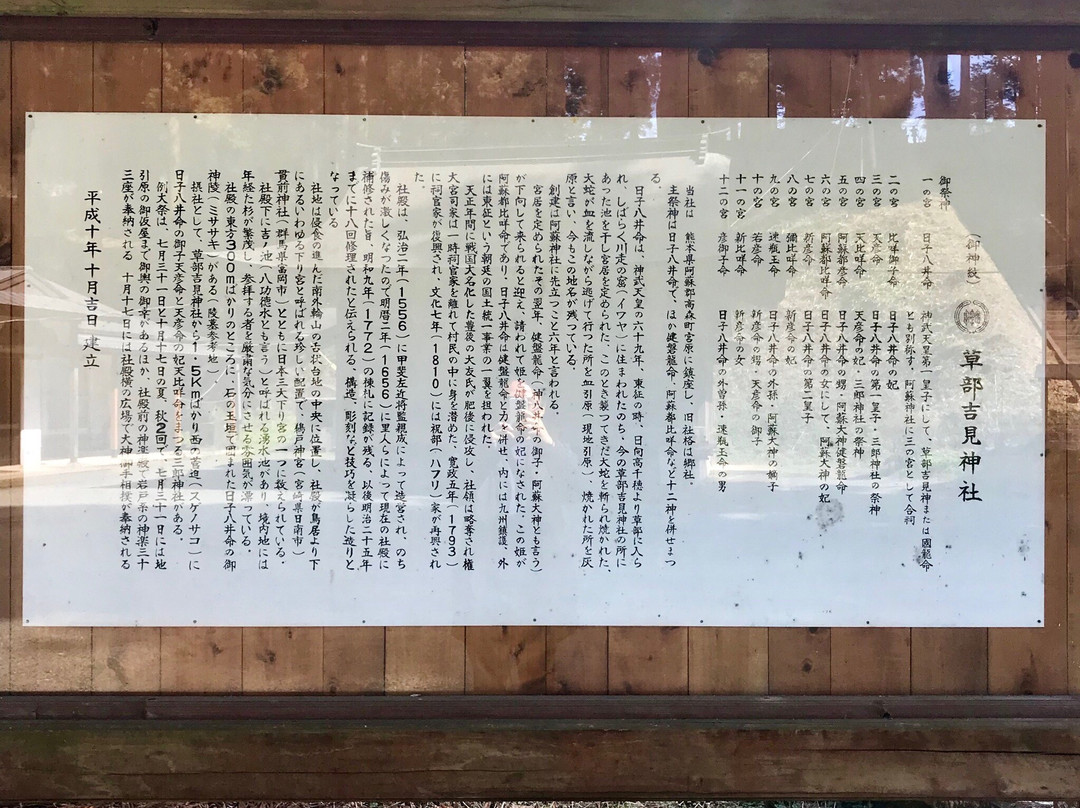 草部吉見神社
(御神紋)
御祭神
一の宮 日子八井命 神武天皇第一皇子にして、草部吉見神または國龍命
とも別称す。阿蘇神社に三の宮として合祀
二の宮 比咩御子命 日子八井命の妃
三の宮 天彦命 日子八井命の第一皇子・三郎神社の祭神
四の宮 天比咩命 天彦命の妃、三郎神社の祭神
五の宮 阿蘇都彦命 日子八井命の甥・阿蘇大神健磐龍命
六の宮 阿蘇都比咩命 日子八井命の女にして、阿蘇大神の妃
七の宮 新彦命 日子八井命の第二皇子
八の宮 彌比咩命 新彦命の妃
九の宮 速瓶玉命 日子八井命の外孫・阿蘇大神の嫡子
十の宮 若彦命 新彦命の甥・天彦命の御子
十一の宮 新比咩命 新彦命の女
十二の宮 彦御子命 日子八井命の外曽孫・速瓶玉命の男
当社は 熊本県阿蘇郡高森町宮原に鎮座し、旧社格は郷社。
主祭神は日子八井命で、ほか健磐龍命、阿蘇都比咩命など十二神を併せまつ
る。
日子八井命は、神武天皇の六十九年、東征の時、日向高千穂より草部に入ら
れ、しばらく川走の窟(イワヤ)に住まわれたのち、今の草部吉見神社の所に
あった池を干し宮居を定められた。このとき襲ってきた大蛇が斬られ焼かれた。
大蛇が血を流しながら逃げて行った所を血引原(現地引原)、焼かれた所を灰
原と言い、今もこの地名が残っている。
創建は阿蘇神社に先立つこと六年と言われる。
宮居を定められたその翌年、健磐龍命(神八井命の御子・阿蘇大神とも言う)
が下向して来られると迎え、請われて姫を健磐龍命の妃になされた。この姫が
阿蘇都比咩命であり、日子八井命は健磐龍命と力を併せ、内には九州鎮護、外
には東征という朝廷の国土統一事業の一翼を担われた。
天正年間に戦国大名化した豊後の大友氏が肥後に侵攻し、社領は略奪され権
大宮司家は一時祠官家を離れて村民の中に身を潜めた。寛政五年(1793)
に祠官家が復興され、文化七年(1810)には祝部(ハフリ)家が再興され
た。
社殿は、弘治二年(1556)に甲斐左近将監親成によって造営され、のち
傷みが激しくなったので明暦二年(1656)に里人らによって現在の社殿に
補修された旨、明和九年(1772)の棟札に記録が残る。以後明治二十五年
までに十八回修理されたと伝えられる。構造、彫刻など技巧を凝らした造りと
なっている
社地は侵食の進んだ南外輪山の舌状台地の中央に位置し、社殿が鳥居より下
にあるいわゆる下り宮と呼ばれる珍しい配置で、鵜戸神宮(宮崎県日南市)
貫前神社(群馬県富岡市)とともに日本三大下り宮の一つに数えられている。
社殿下に吉ノ池(八功徳水とも言う)と呼ばれる湧水池があり、境内地には
年経た杉が繁茂し、参拝する者を厳粛な気分にさせる雰囲気が漂っている。
社殿の東方300mばかりのところに、石の玉垣で囲まれた日子八井命の御
神陵(ミササギ)がある(陵墓参考地)
摂社として、草部吉見神社から1.5Kmばかり西の菅迫(スゲノサコ)に
日子八井命の御子天彦命と天彦命の妃天比咩命をまつる三郎神社がある。
例大祭は、七月三十一日と十月十七日の夏、秋2回で、七月三十一日には地
引原の御仮屋まで御輿の御幸があるほか、社殿前の神楽殿で岩戸系の神楽三十
三座が奉納される 十月十七日には社殿横の広場で大神御前相撲が奉納される
平成十年十月吉日 建立